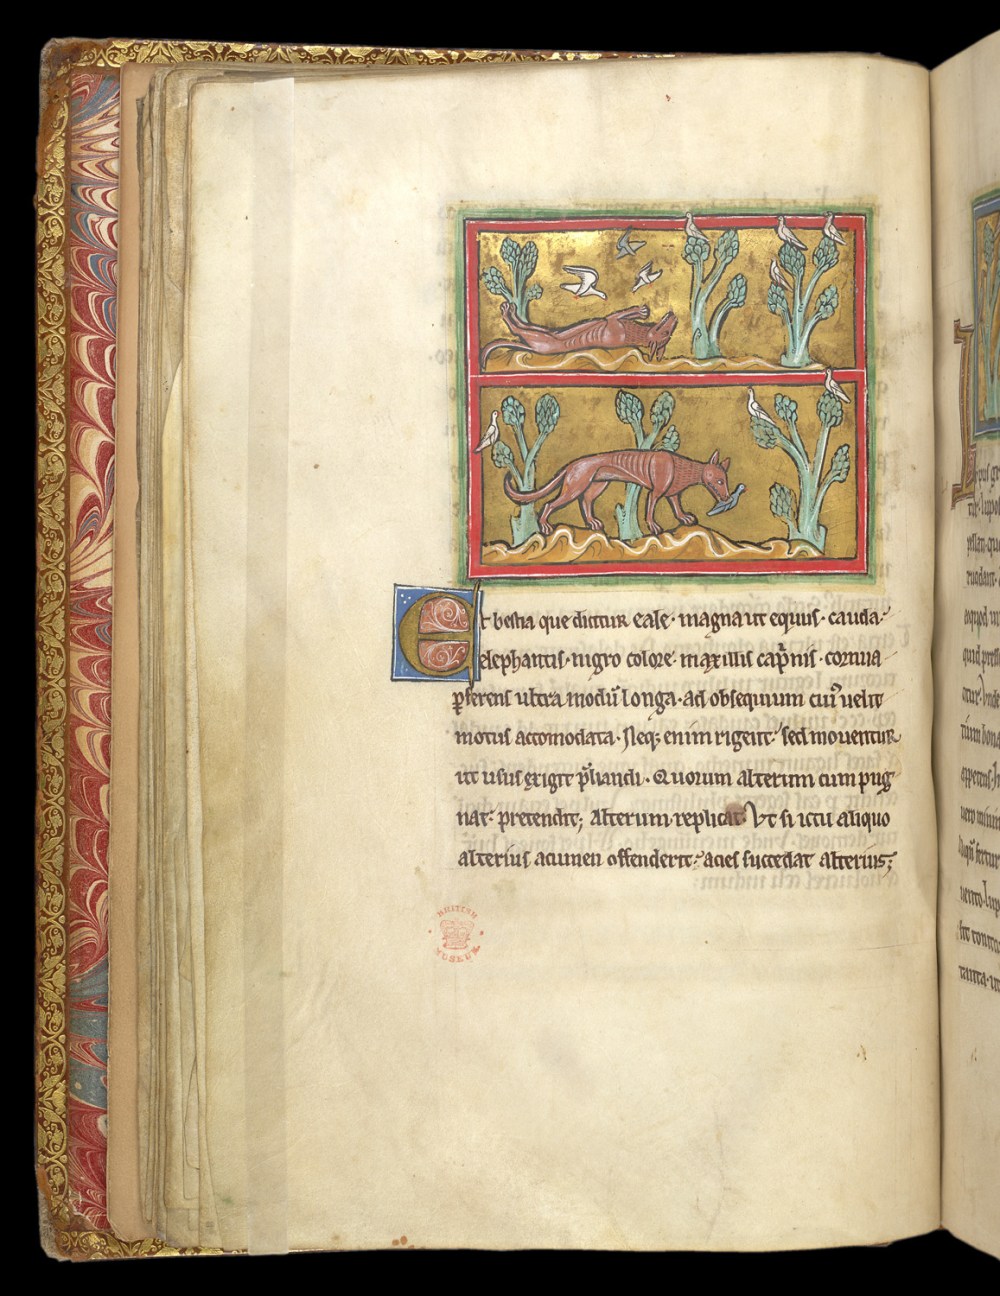 Et bestia que dicitur eale· magna ut equus· cauda
elephantis· nigro colore· maxillis cap̃nis· cornua
p̱ferens ultra modũ longa· ad obsequium cuiꝰ uelit
motus accomodata· Neq; enim rigent· sed mouentur
ut usus exigit p̃liandi· Quorum alterum cum pug
nat· pretendit; alterum replicat Vt si ictu aliquo
alterius acumen offenderit· acies succedat alterius;
BRITISH
MUSEUM